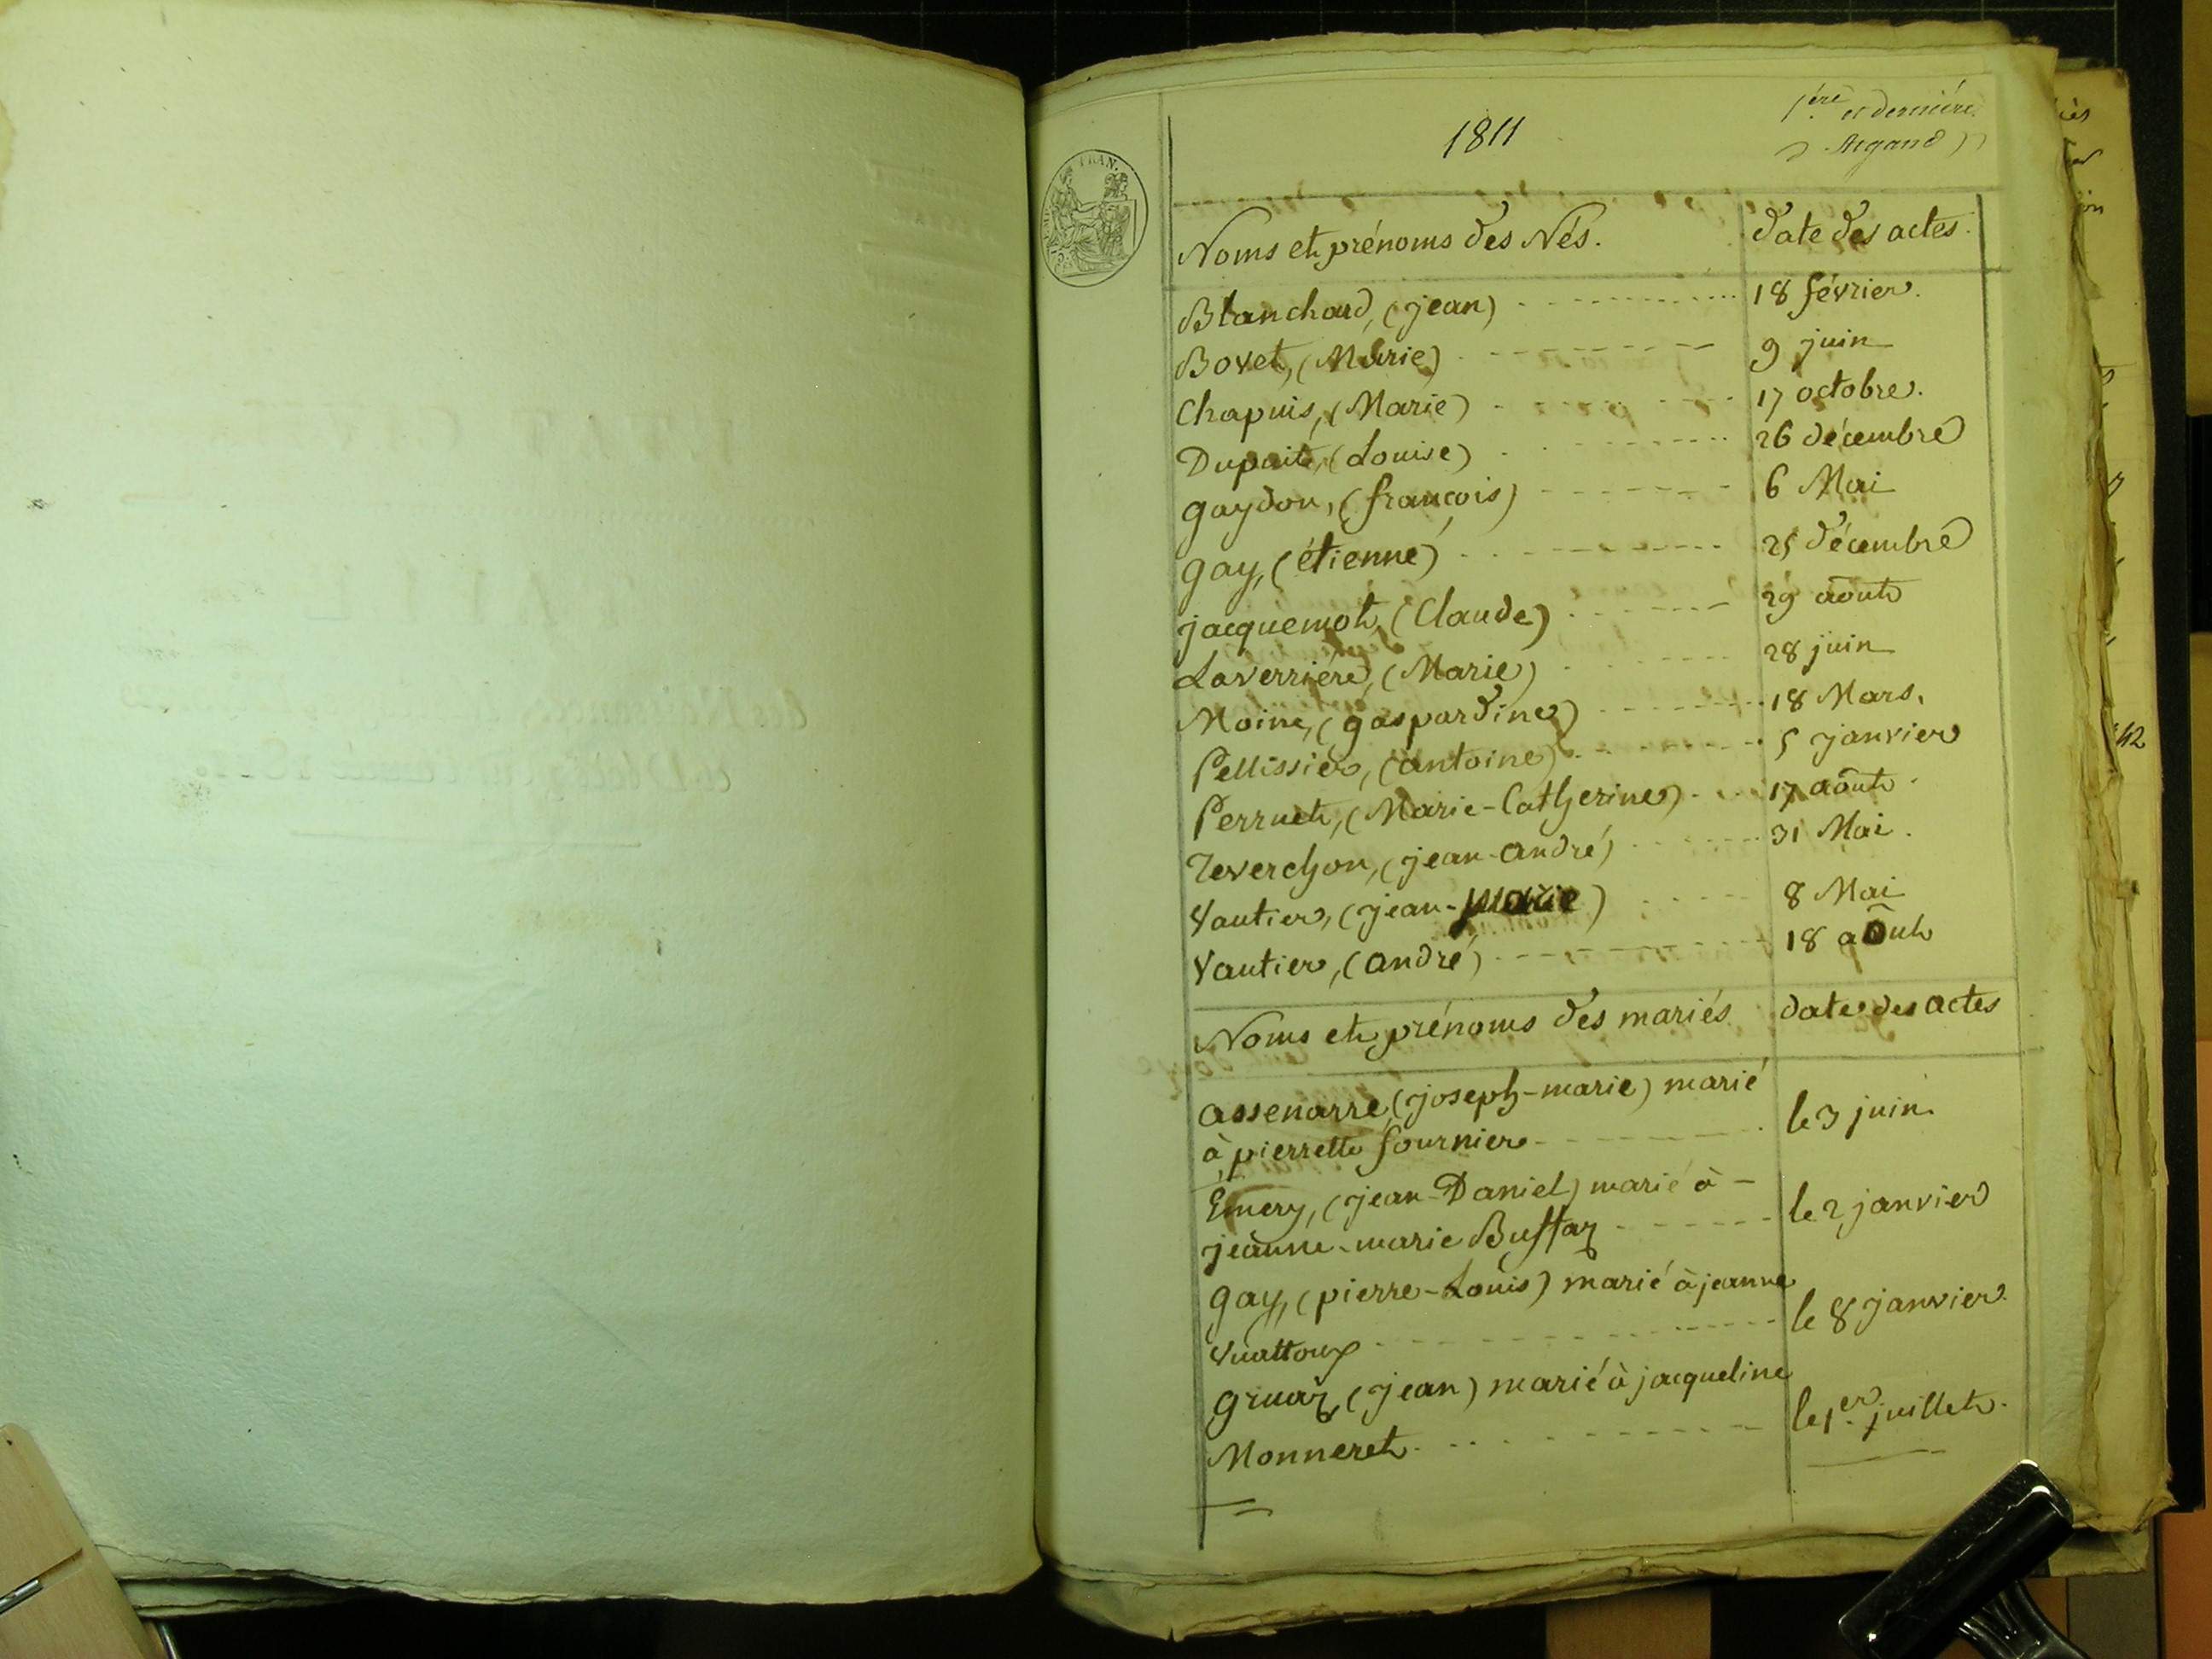 1811
1ère et dernière
Argand
Noms et prénoms des Nés. date des actes.
Blanchard, (jean) 18 février.
Bovet, (Marie) 9 juin
Chapuis, (Marie) 17 octobre.
(Louise) 26 décembre
gaydon, (françois) 6 Mai
gay, (étienne) 25 décembre
jacquemot, (Claude) 29 août
Laverrière, (Marie) 28 juin
Moine, (gaspardine) 18 Mars.
Pellissier, (antoine) 5 janvier
Perruet, (Marie-Catherine) 17 août
Reverchon, (jean-andré) 31 Mai.
Vautier, (jean-marie) 8 Mai
Vautier, (andré) 18 août
Noms et prénoms des mariés date des actes
assenarre, (joseph-marie) marié
à pierrette fournier le 3 juin.
Émery, (jean-Daniel) marié à
jeanne-marie Buffaz le 2 janvier
gay, (pierre-Louis) marié à jeanne
Vuattoux le 8 janvier.
gruaz, (jean) marié à jacqueline
Monneret. le 1er juillet.